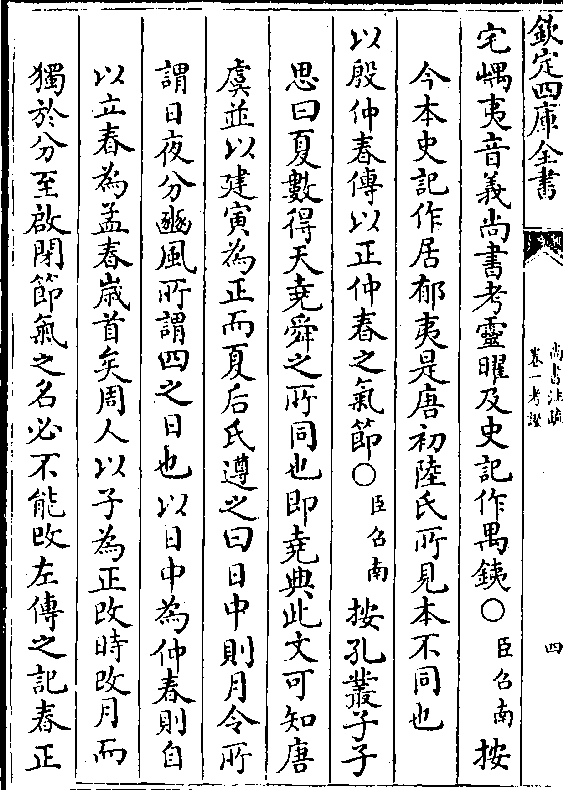 欽定四庫全書
尚書注疏
卷一考證
四
宅嵎夷音義尚書考靈曜及史記作禺銕○臣召南按
今本史記作居郁夷是唐初陸氏所見本不同也
以殷仲春傳以正仲春之氣節○臣召南按孔叢子子
思曰夏數得天堯舜之所同也即堯典此文可知唐
虞並以建寅為正而夏后氏遵之曰日中則月令所
謂日夜分豳風所謂四之日也以日中為仲春則自
以立春為孟春嵗首矣周人以子為正改時改月而
獨於分至啟閉節氣之名必不能改左傳之記春正